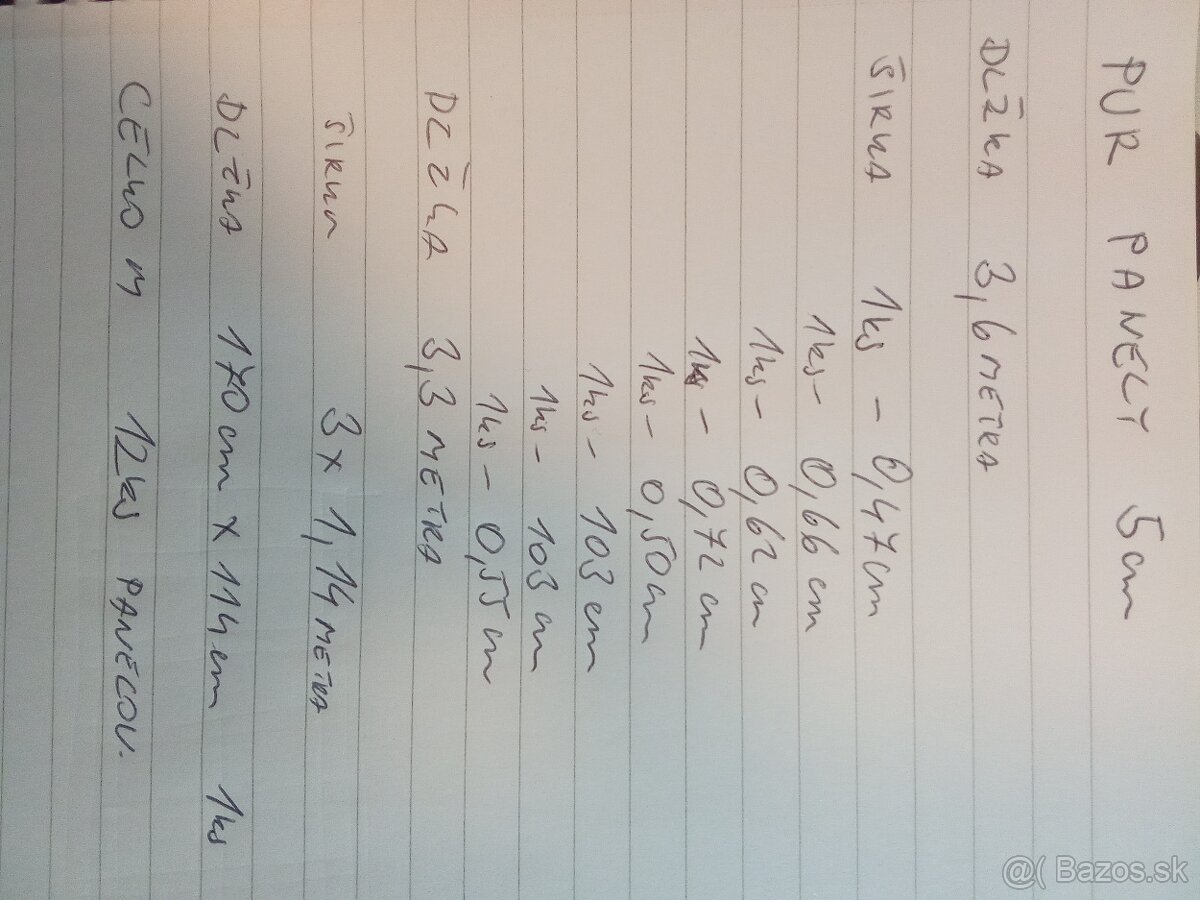 PUR PANELY 5cm
DLŽKA 3,6 METRA
ŠIRKA 1ks - 0,47cm
1ks - 0,66cm
1ks - 0,62cm
1ks - 0,72cm
1ks - 0,50cm
1ks - 103cm
1ks - 103cm
1ks - 0,55cm
DLŽKA 3,3 METRA
ŠIRKA 3x 1,14 METRA
DLŽKA 170cm x 114cm 1ks
CELKOM 12ks PANELOV.
@( Bazos.sk